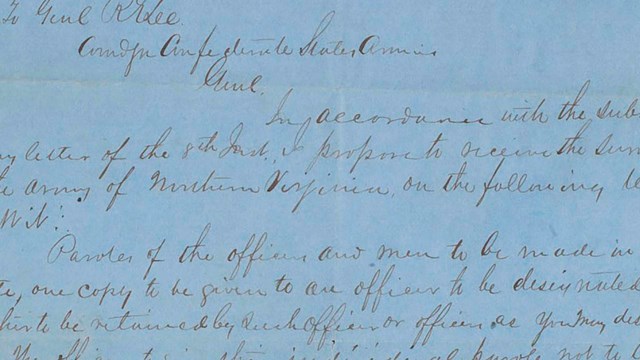 To Genl R E Lee
Comdg Confederate States Armies
Genl.
In accordance with the sub
letter of the 8th Inst. I propose to receive the surr
army of Northern Virginia on the following te
Wit:
Paroles of the officers and men to be made in
one copy to be given to an officer to be designated
to be retained by such officer or officers as you may des
not to